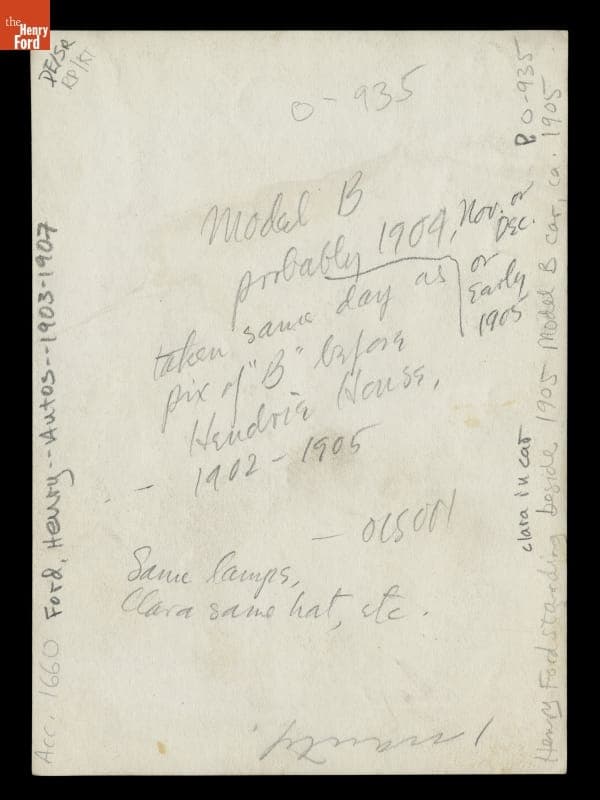 the
Henry
Ford
DE/SR
RP/KT
O-935
Model B
probably 1904, Nov. or
Dec.
or
Early
1905
taken same day as
pix of "B" before
Hendrie House,
- 1902-1905
- OLSON
Same lamps,
Clara same hat, etc.
Acc. 1660 Ford, Henry--Autos--1903-1907
P.O-935
clara in car
Henry Ford standing beside 1905 Model B car, ca. 1905